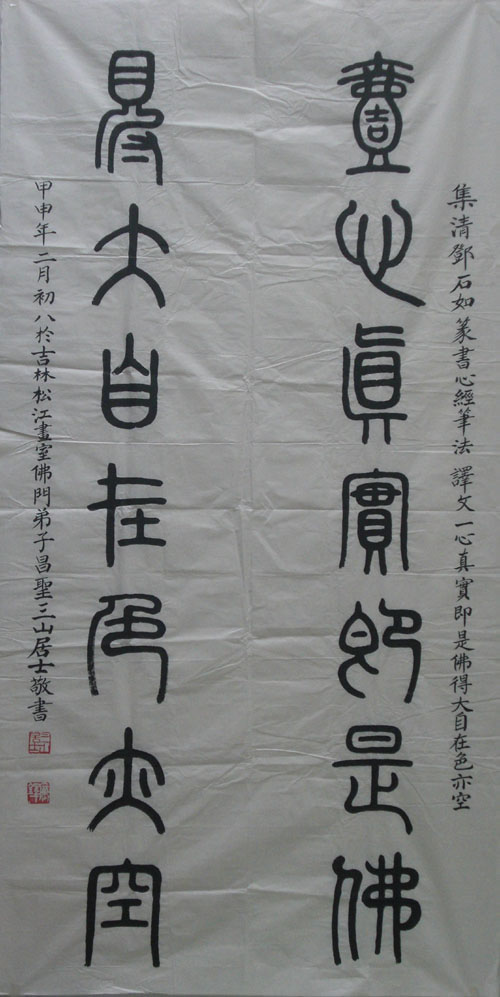 集清鄧石如篆書心經筆法 譯文一心真實即是佛得大自在色亦空
壹心眞實即是佛
得大自在色亦空
甲申年二月初八於吉林松江畫室佛門弟子昌聖三山居士敬書